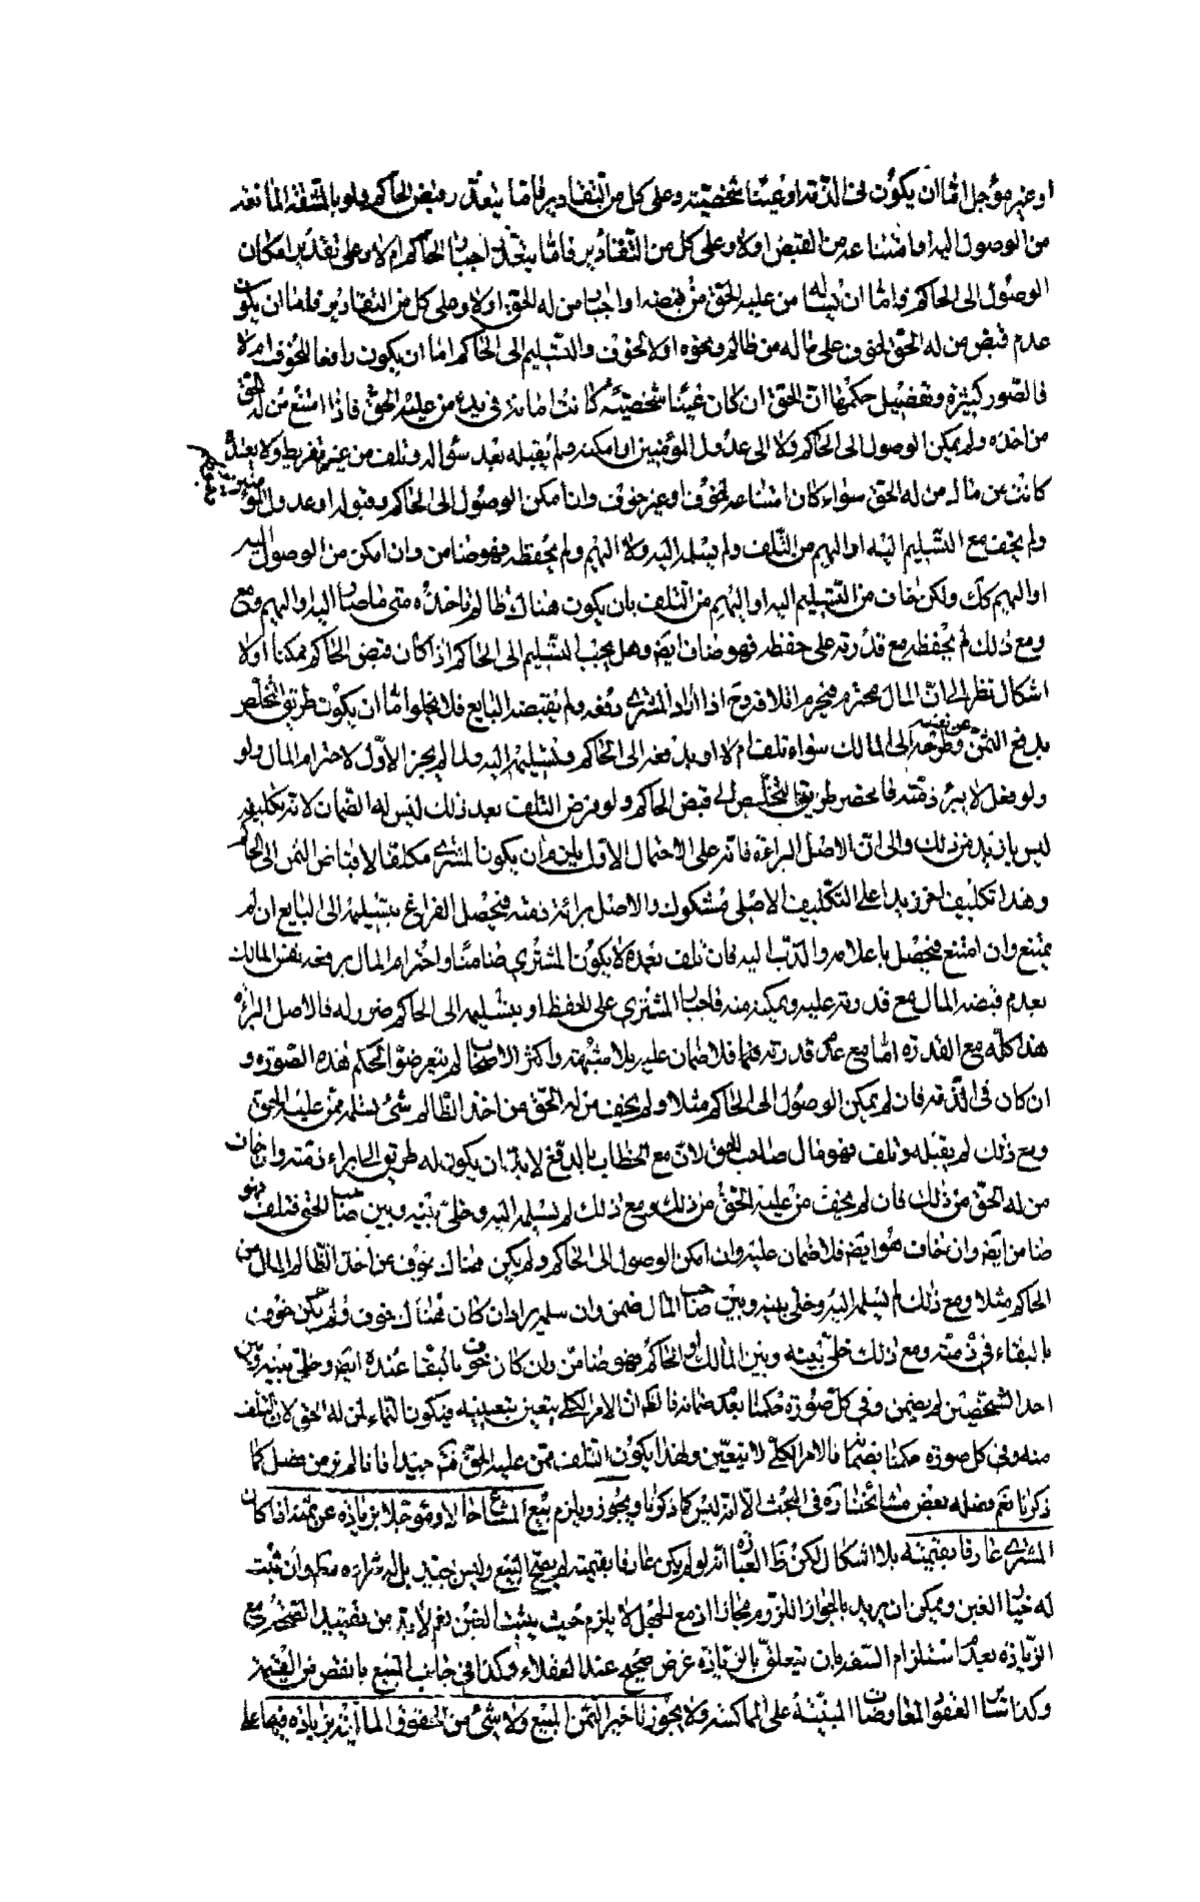 او غير مؤجل اما ان يكون فى الذمة او عينا شخصية وعلى كل من التقادير فاما يتعذر قبض الحاكم ولو بالمشقة المانعة
من الوصول اليه او امتناعه من القبض اولا وعلى كل من التقادير فاما يتحقق اجبار الحاكم ام لا وعلى تقدير امكان
الوصول الى الحاكم فاما ان يمتنع من عليه الحق من قبضه او اجبار من له الحق اولا وعلى كل من التقادير فاما ان يكون
عدم قبض من له الحق لخوف على ماله من ظالم ونحوه اولا لخوف والتسليم الى الحاكم اما ان يكون رافعا للخوف ام لا
فالصور كثيرة وتفصيل حكمها ان الحق ان كان عينا شخصية كانت امانة فى يد من عليه الحق فاذا امتنع من له الحق
من اخذه ولم يمكن الوصول الى الحاكم ولا الى عدول المؤمنين او امكنه ولم يقبله بعد سؤاله وتلف من غير تفريط ولا تعد
كانت من مال من له الحق سواء كان امتناعه لخوف او غير خوف وان امكن الوصول الى الحاكم وقبوله او عدول المؤمنين
ولم يخف مع التسليم اليه او اليهم من التلف ولم يسلمه اليه ولا اليهم ولم يحفظه فهو ضامن وان امكن من الوصول اليه
او اليهم كك ولكن يخاف من التسليم اليه او اليهم من التلف بان يكون هناك ظالم ياخذه متى ما صار اليه او اليهم ومع
ومع ذلك لم يحفظه مع قدرته على حفظه فهو ضامن ايضه وهل يجب التسليم الى الحاكم اذا كان قبض الحاكم ممكنا اولا
اشكال نظر الى ان المال محترم فيحرم اتلافه وح اذا اراد المشترى دفعه ولم يقبضه البايع فلا يخلو اما ان يكون طريق التخلص
بدفع الثمن عن نفسه وطرحه الى المالك سواء تلف ام لا او بدفعه الى الحاكم وتسليمه اليه ولما لم يجز الاول لاحترام المال ولو
ولو فعل لا يبرء ذمته فانحصر طريق التخلص فى قبض الحاكم ولو فرض التلف بعد ذلك ليس له الضمان لان تكليفه
ليس بازيد من ذلك والى ان الاصل البراءة فانه على الاحتمال الاول يلزم ان يكون المشترى مكلفا لاقباض الثمن الى الحاكم
وهذا تكليف اخر زيد على التكليف الاصلى مشكوك والاصل برائة ذمته فيحصل الفراغ بتسليمه الى البايع ان لم
يمتنع وان امتنع فيحصل باعلامه والدب اليه فان تلف بعده لا يكون المشترى ضامنا واحترام المال يرفعه نفس المالك
بعدم قبضه المال مع قدرته عليه وتمكنه منه فاجبار المشترى على الحفظ او بتسليمه الى الحاكم ضرر له فالاصل البرائة
هذا كله مع القدرة اما مع عدم قدرته فيها فلا ضمان عليه بلا شبهة واكثر الاصحاب لم يتعرضوا لحكم هذه الصورة و
ان كان فى الذمة فان لم يمكن الوصول الى الحاكم مثلا ولم يخف من له الحق من اخذ الظالم شئ يسلمه من عليه الحق
ومع ذلك لم يقبله وتلف فهو مال صاحب الحق لان مع الخطاب بالدفع لا بد ان يكون له طريق الى ابراء ذمته وان خاف
من له الحق من ذلك فان لم يخف من عليه الحق من ذلك ومع ذلك لم يسلمه اليه وخلى بينه وبين صاحب الحق فتلف فهو
ضامن ايضه وان خاف هو ايضه فلا ضمان عليه وان امكن الوصول الى الحاكم ولم يكن هناك خوف من اخذ الظالم المال من
الحاكم مثلا ومع ذلك لم يسلمه اليه وخلى بينه وبين صاحب المال ضمن وان سلمه برء وان كان هناك خوف ولم يكن خوف
بالبقاء فى ذمته ومع ذلك خلى بينه وبين المالك او الحاكم فهو ضامن وان كان خوف بالبقاء عنده ايضه وخلى بينه وبين
احد الشخصين لم يضمن وفى كل صورة حكمنا بعدم ضمانه فالظ ان الامر الكلى يتعين بتعيينه فيكون النماء لمن له الحق لان التلف
منه وفى كل صورة حكمنا بضمانه فالامر الكلى لا يتعين ولهذا يكون التلف ممن عليه الحق ثم جيدا فانا لم نر من فصل كما
ذكرنا نعم فصله بعض مشائخنا ره فى البحث الا انه ليس كما ذكرنا ويجوز ويلزم بيع المتاع حالا ومؤجلا بزيادة عن ثمنه اذا كان
المشترى عارفا بقيمته بلا اشكال لكن ظ العبارة انه لو لم يكن عارفا بقيمته لم يصح البيع وليس جيد بل له شراءه مطم وان ثبت
له خيار الغبن ويمكن ان يريد بالجواز اللزوم مجازا اذ مع الجهل لا يلزم حيث يثبت الغبن نعم لا بد من تقييد الصحة مع
الزيادة بعدم استلزام السفه بان يتعلق بالزيادة غرض صحيح عند العقلاء وكذا فى جانب البيع بانقص من القيمة
وكذا سائر العقود المعاوضات المبنية على المماكسة ولا يجوز تاخير الثمن المبيع ولا شئ من الحقوق المالية بزيادة فيها على